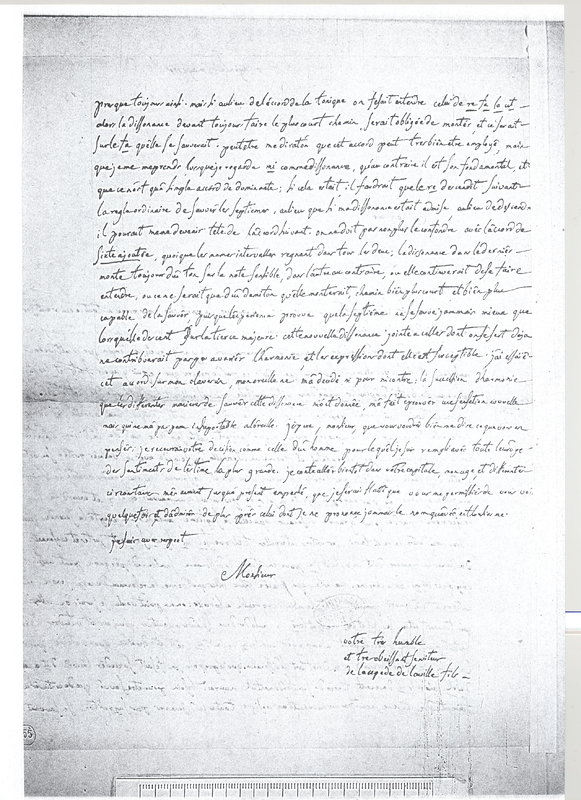 presque toujours ainsi. mais si au lieu de l'accord de la tonique on fesait entendre celui de re fa la ut
alors la dissonance devant toujours faire le plus court chemin, serait obligée de monter et ce serait
sur le fa qu'elle se sauverait. peut etre me dira t'on que cet accord peut tres bien etre employé, mais
que je me meprends lorsque je regarde ut comme dissonance, qu'au contraire il est son fondamental, et
que ce n'est qu'un simple accord de dominante; si cela etait: il faudrait que le re descendit suivant
la regle ordinaire de sauver les septiemes, au lieu que si ma dissonance etait admise au lieu de descendre
il pourait meme devenir tete de l'accord suivant. on ne doit pas non plus le confondre avec l'accord de
sixte ajoutée, quoique les memes intervalles regnent dans tous les deux; la dissonance dans le dernier
monte toujours d'un ton sur la note sensible, dans l'autre au contraire, ou elle continuerait de se faire
entendre, ou ce ne serait que d'un demi ton qu'elle monterait, chemin bien plus court et bien plus
capable de la sauver puisque l'experience prouve que la septieme ne se sauve jammais mieux que
lorsqu'elle descent sur la tierce majeure. cette nouvelle dissonance jointe a celles dont on se sert deja
ne contribuerait pas peu a varier l'harmonie, et les expressions dont elle est susceptible. j'ai essaié
cet accord sur mon clavecin, mon oreille ne m'a decidé ni pour ni contre; la succession d'harmonie
que les differentes manieres de sauver cette dissonance m'ont donnée, m'a fait eprouver une sensation nouvelle
mais qui ne m'a pas paru insuportable a l'oreille. j'espere, monsieur, que vous voudrés bien me dire ce que vous en
pensés. je recevrai votre decision comme celle d'un homme pour lequel je suis rempli avec toute l'europe
des sentiments de l'estime la plus grande. je conte aller bientot dans votre capitale, mon age, et differentes
circonstances m'en aiant jusqu'a present empeché, que je serai flatté que vous me permettiés de vous voir
quelquefois et d'admirer de plus près celui dont je ne prononce jammais le nom qu'avec enthousiasme.
je suis avec respect
Monsieur
votre très humble
et tres obeissant serviteur
de la cepede de laville fils